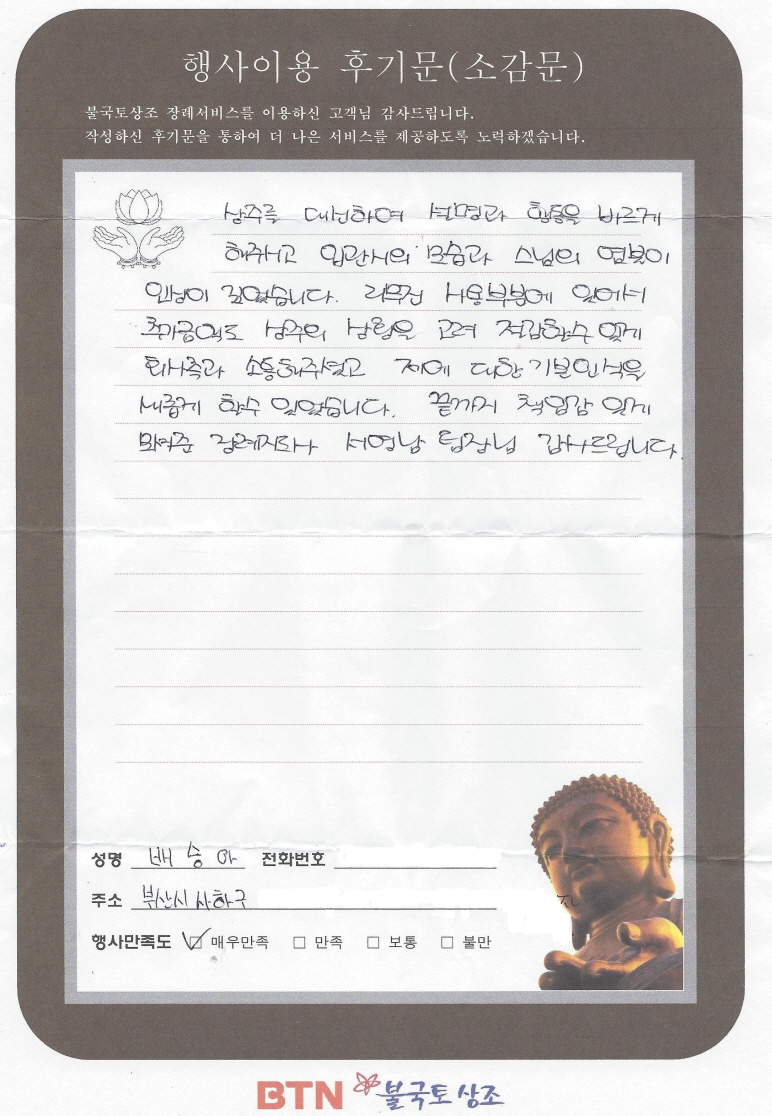 행사이용 후기문(소감문)
불국토상조 장례서비스를 이용하신 고객님 감사드립니다.
작성하신 후기문을 통하여 더 나은 서비스를 제공하도록 노력하겠습니다.
상주를 대신하여 변명과 행동을 바르게
해주시고 입관시의 모습과 스님의 염불이
인상이 깊었습니다. 사용부분에 있어서
추가금액도 상주의 상황을 고려 절감할수 있게
회사측과 소통해주셨고 제에 대한 기본인식을
새롭게 할수 있었습니다. 끝까지 책임감 있게
장례지도사 서영남 팀장님 감사드립니다.
성명 배승아 전화번호
주소 부산시 사하구
행사만족도 ☑ 매우만족 □ 만족 □ 보통 □ 불만
BTN 불국토상조